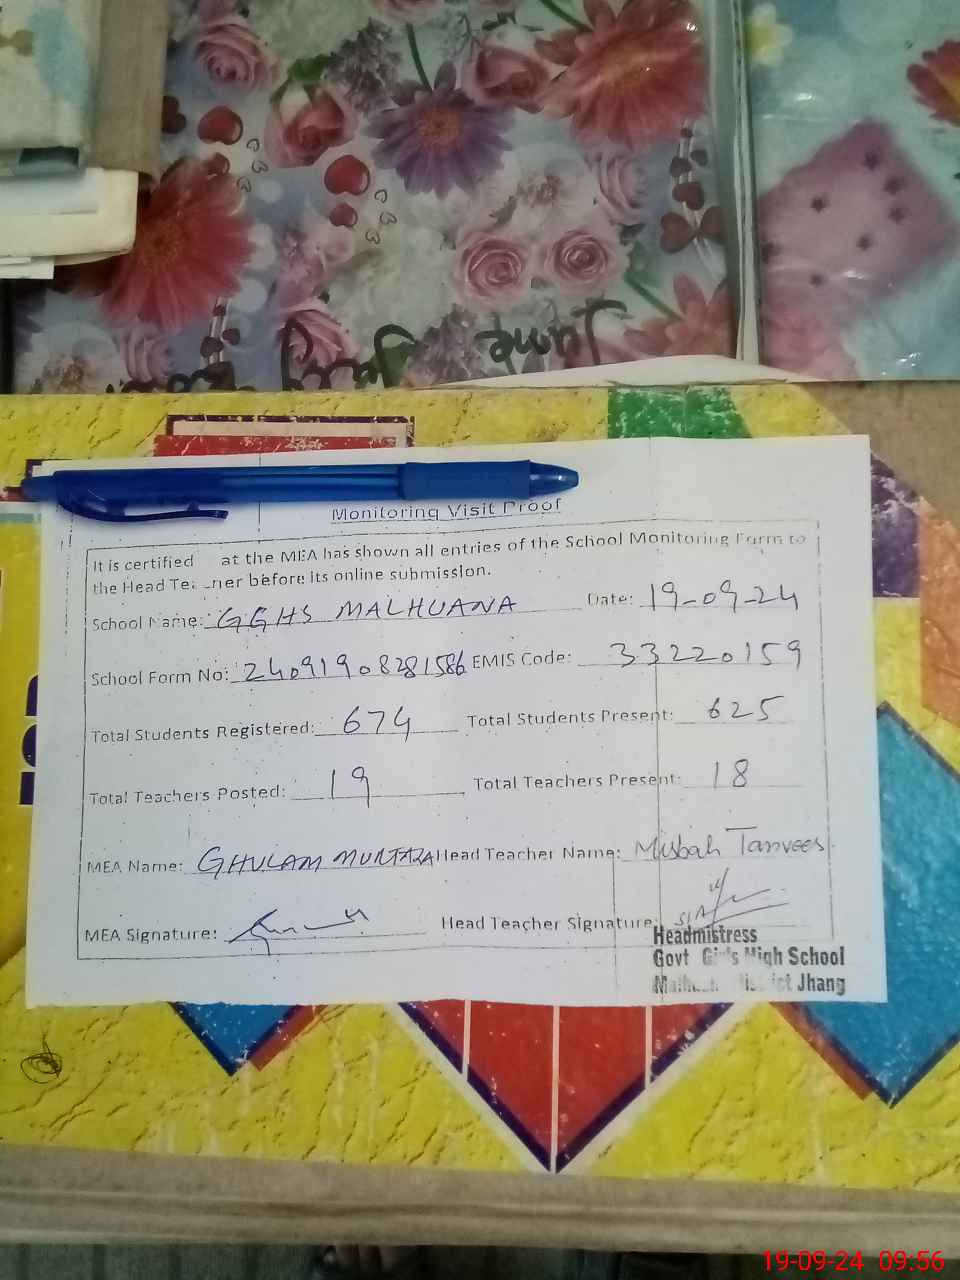 Monitoring Visit Proof
It is certified at the MEA has shown all entries of the School Monitoring Form to
the Head Te ner before its online submission.
School Name: GGHS MALHUANA Date: 19-09-24
School Form No: 24091908281586 EMIS Code: 33220159
Total Students Registered: 674 Total Students Present: 625
Total Teachers Posted: 19 Total Teachers Present: 18
MEA Name: GHULAM MURTAZA Head Teacher Name: Misbah Tanveer
MEA Signature: Head Teacher Signature:
Headmistress
Govt Girls High School
District Jhang
19-09-24 09:56